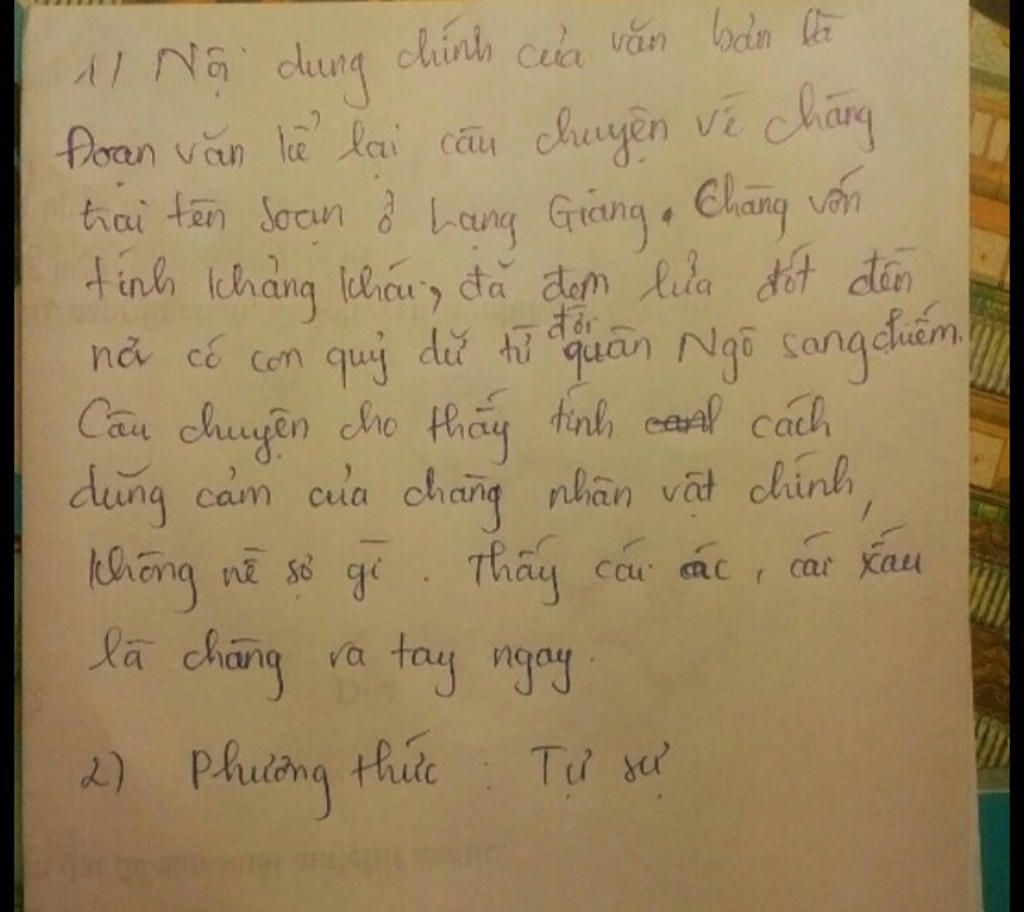 1) Nội dung chính của văn bản là
Đoạn văn kể lại câu chuyện về chàng
trai tên Soạn ở Lạng Giang. Chàng vốn
tính khảng khái, đã đem lửa đốt đền
nơi có con quỷ dữ từ đời quân Ngô sang chiếm.
Câu chuyện cho thấy tính cách
dũng cảm của chàng nhân vật chính,
không nề sợ gì. Thấy cái ác, cái xấu
là chàng ra tay ngay.
2) Phương thức: Tự sự